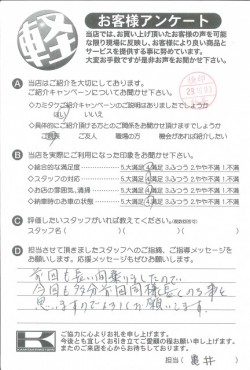 軽
お客様アンケート
当店では、お買い上げ頂いたお客様の声を可能な限り現場に反映し、お客様により良い商品とサービスを提供する事に努めています。
大変お手数ですが是非お声をお聞かせ下さい。
A 当店はご紹介を大切にしております。
ご紹介キャンペーンについてお聞かせ下さい。
はい いいえ
ご親族 ご友人 職場の方 機会があれば紹介したい
B 当店を実際にご利用になった印象をお聞かせ下さい。
◇総合的な満足度 5.大満足 4.満足 3.ふつう 2.やや不満 1.不満
◇スタッフの対応 5.大満足 4.満足 3.ふつう 2.やや不満 1.不満
◇お店の雰囲気、清掃 5.大満足 4.満足 3.ふつう 2.やや不満 1.不満
◇納車時のお車の状態 5.大満足 4.満足 3.ふつう 2.やや不満 1.不満
C 評価したいスタッフがいれば教えてください。(複数回答可)
スタッフ名( )( )
D 担当させて頂きましたスタッフへのご指摘、ご指導メッセージをお願いします。応援メッセージもぜひお願いします。
前回も長い間乗りましたので
今回も
思いますのでよろしくお願いします。
K
ご協力に心よりお礼を申し上げます。
今後とも宜しくお引き立てご愛顧の程お願い申し上げます。
またのご来店を心からお待ちしております。
担当( 亀井 )